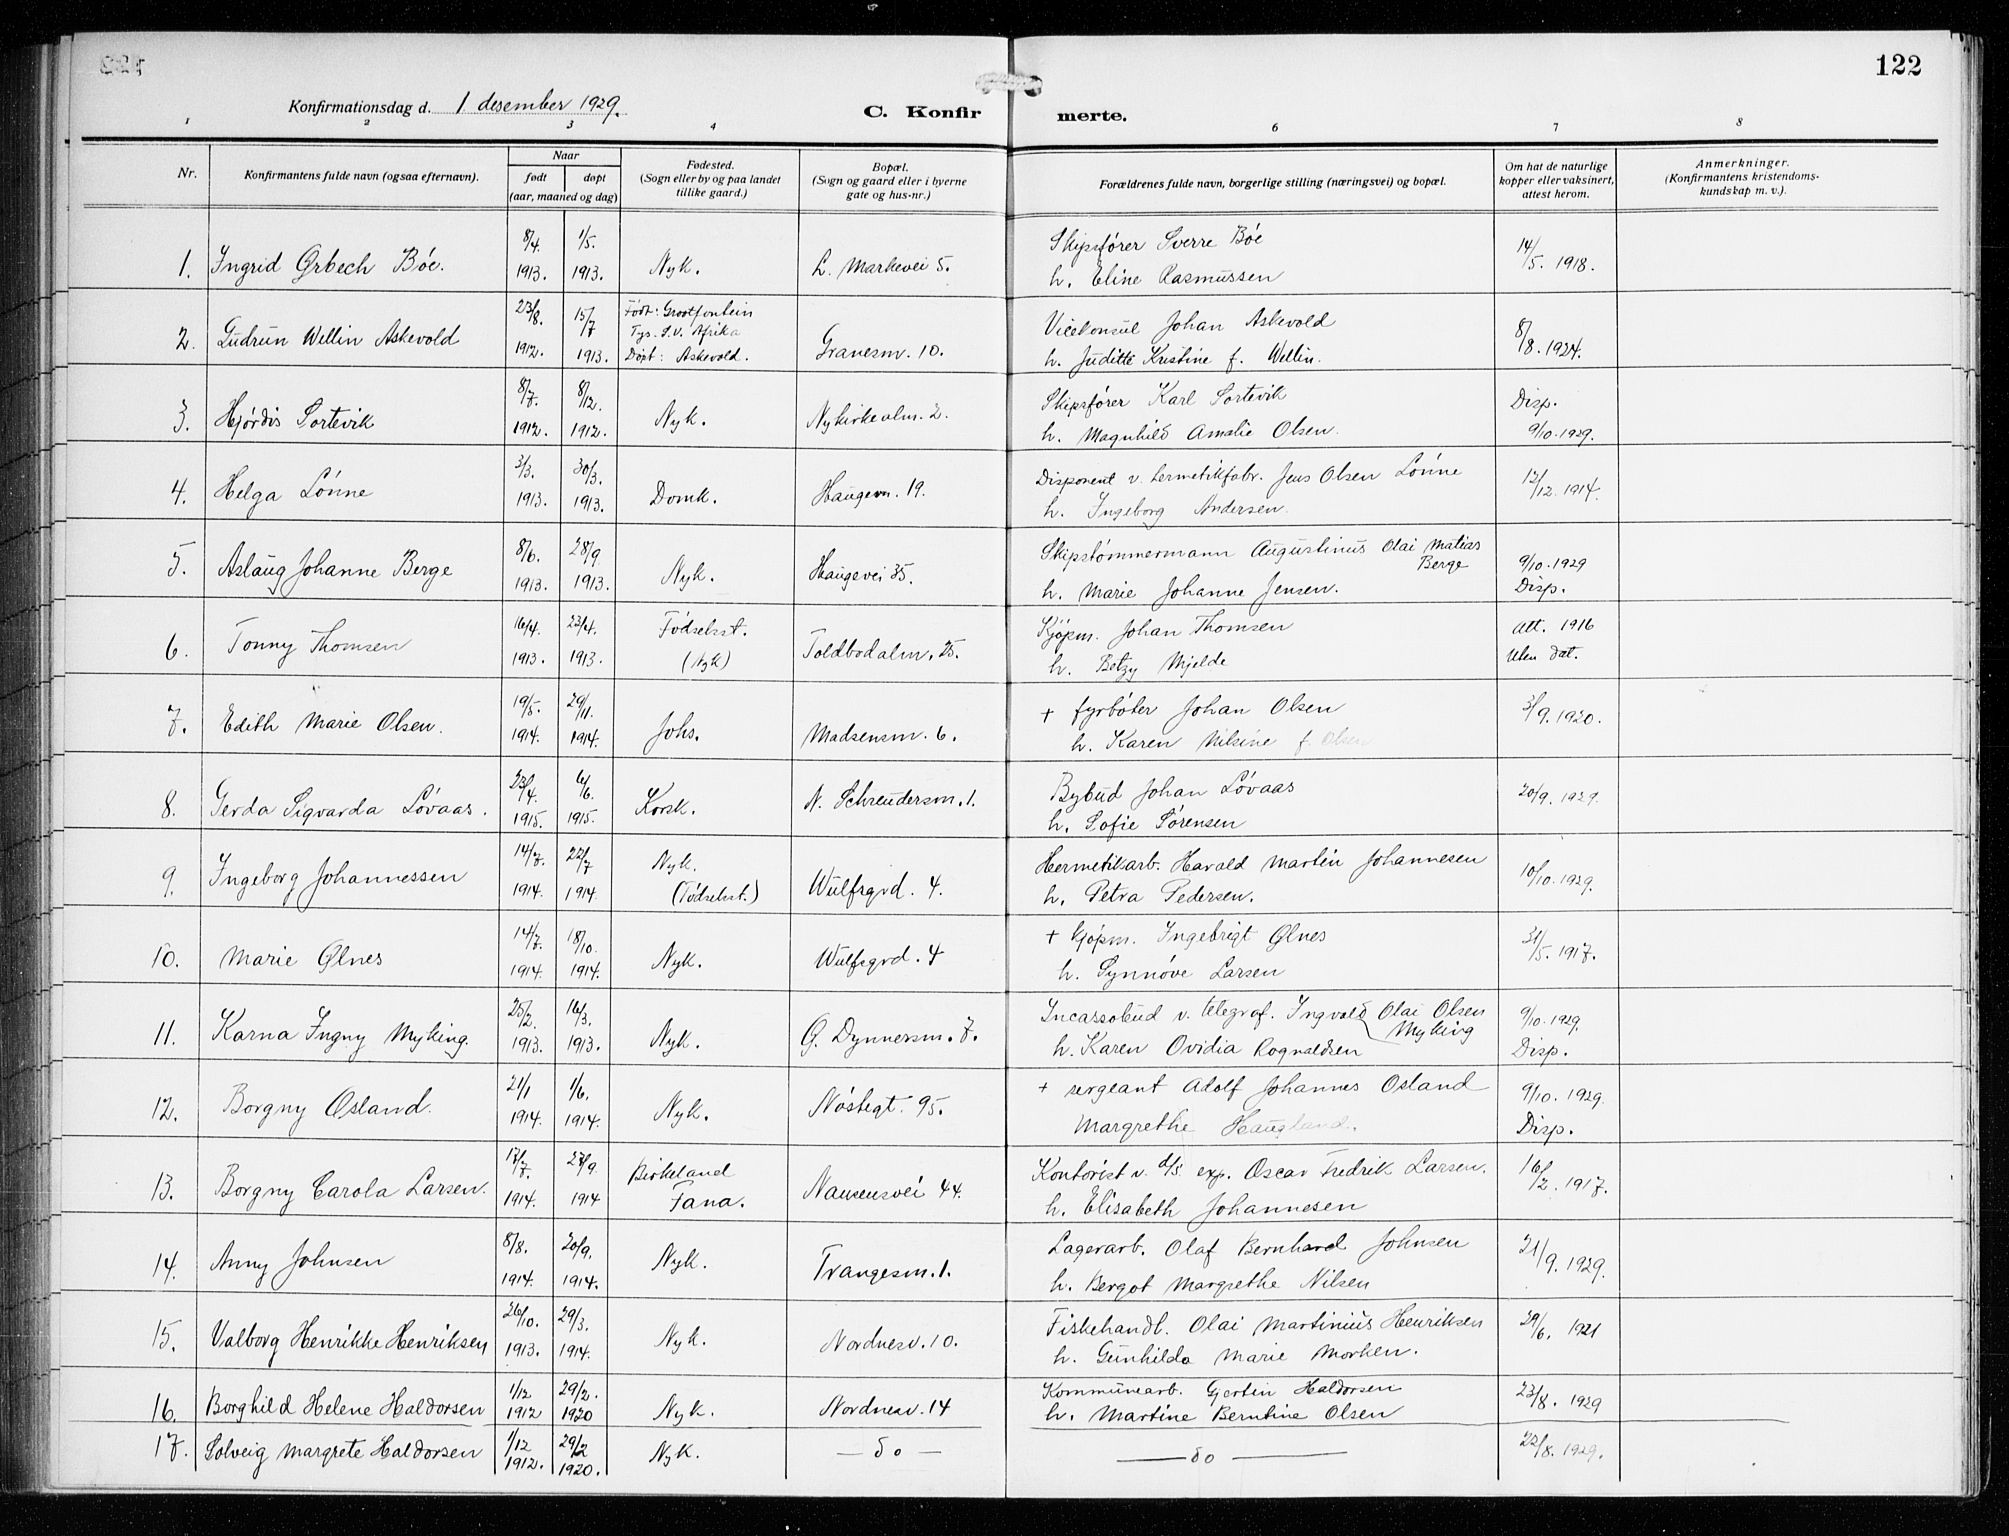 122
Konfirmationsdag d. 1. desember 1929.
C. Konfirmerte.
1 2 3 4 6 7 8
Nr.
Konfirmantens fulde navn (ogsaa efternavn).
Naar
født
døpt
(aar, maaned og dag)
Fødested.
(Sogn eller by og paa landet
tillike gaard.)
Bopæl.
(Sogn og gaard eller i byerne
gate og hus-nr.)
Forældrenes fulde navn, borgerlige stilling (næringsvei) og bopæl.
Om hat de naturlige
kopper eller vaksinert,
attest herom.
Anmerkninger.
(Konfirmantens kristendoms-
kundskap m. v.).
1. Ingrid Grbech Böe. 8/4. 1913. 1/5. 1913. Nyk. L. Markevei 5.
Skipsförer Sverre Böe
h. Eline Rasmussen
14/5. 1918.
2. Gudrun Wellin Askevold 23/8. 1912. 15/7 1913.
Födt: Grootfontein
Tys. S.V. Afrika
Döpt: Askevold.
Granesm. 10.
Vicekonsul Johan Askevold
h. Juditte Kristine f. Wellin.
8/8. 1924.
3. Hjördis Sortevik 8/7. 1912. 8/12. 1912. Nyk. Nykirkealm. 2.
Skipsförer Karl Sortevik
h. Magnhild Amalie Olsen.
Disp.
9/10. 1929.
4. Helga Lönne 3/3. 1913. 30/3. 1913. Domk. Haugevn. 19.
Disponent v. hermetikfabr. Jens Olsen Lönne
h. Ingeborg Andersen.
12/12. 1914.
5. Aslaug Johanne Berge 8/6. 1913. 28/9 1913. Nyk. Haugevei 35.
Skipstömmermann Augustinus Olai Matias
Berge
h. Marie Johanne Jensen.
9/10. 1929
Disp.
6. Tonny Thomsen 16/4. 1913. 23/4. 1913.
Födselsst.
(Nyk)
Toldbodalm. 25.
Kjöpm. Johan Thomsen
h. Betzy Mjelde
Att. 1916
uten dat.
7. Edith Marie Olsen. 19/5. 1914. 29/11. 1914. Johs. Madsensm. 6.
+ fyrböter Johan Olsen
h. Karen Nilsine f. Olsen
3/9. 1920.
8. Gerda Sigvarda Lövaas. 23/4. 1915. 6/6. 1915. Korsk. N. Schreudersm. 1.
Bybud Johan Lövaas
h. Sofie Sörensen
20/9. 1929.
9. Ingeborg Johannessen 14/7. 1914. 22/7 1914.
Nyk.
(Födselsst.)
Wulfsgrd. 4.
Hermetikarb. Harald Martin Johannesen
h. Petra Pedersen.
10/10. 1929.
10. Marie Ølnes 14/7. 1914. 18/10. 1914. Nyk. Wulfsgrd. 4
+ kjöpm. Ingebrigt Ølnes
h. Synnöve Larsen
31/5. 1917.
11. Karna Ingny Myking. 25/2. 1913. 16/3. 1913. Nyk. G. Dynnersm. 7.
Incassobud v. telegraf. Ingvald Olai Olsen
Myking
h. Karen Ovidia Rognaldsen
9/10. 1929.
Disp.
12. Borgny Osland. 21/1 1914. 1/6. 1914. Nyk. Nöstegt. 95.
+ sergeant Adolf Johannes Osland
Margrethe Haugland.
9/10. 1929.
Disp.
13. Borgny Carola Larsen. 17/7. 1914. 27/9. 1914
Birkeland
Fana.
Nansensvei 44.
Kontorist v. d/s exp. Oscar Fredrik Larsen.
h. Elisabeth Johannesen
16/2. 1917.
14. Anny Johnsen 8/8. 1914. 20/9. 1914. Nyk. Trangesm. 1.
Lagerarb. Olaf Bernhard Johnsen
h. Bergot Margrethe Nilsen
21/9. 1929.
15. Valborg Henrikke Henriksen 26/10. 1913. 29/3. 1914. Nyk. Nordnesv. 10.
Fiskehandl. Olai Martinius Henriksen
h. Gunhilda Marie Morken.
29/6. 1921
16. Borghild Helene Haldorsen 1/12 1912 29/2. 1920 Nyk. Nordnesv. 14
Kommunearb. Gjertin Haldorsen
h. Martine Berntine Olsen
23/8. 1929
17. Solveig Margrete Haldorsen 1/12 1912. 29/2 1920. Nyk. — do —
— do —
22/8. 1929.